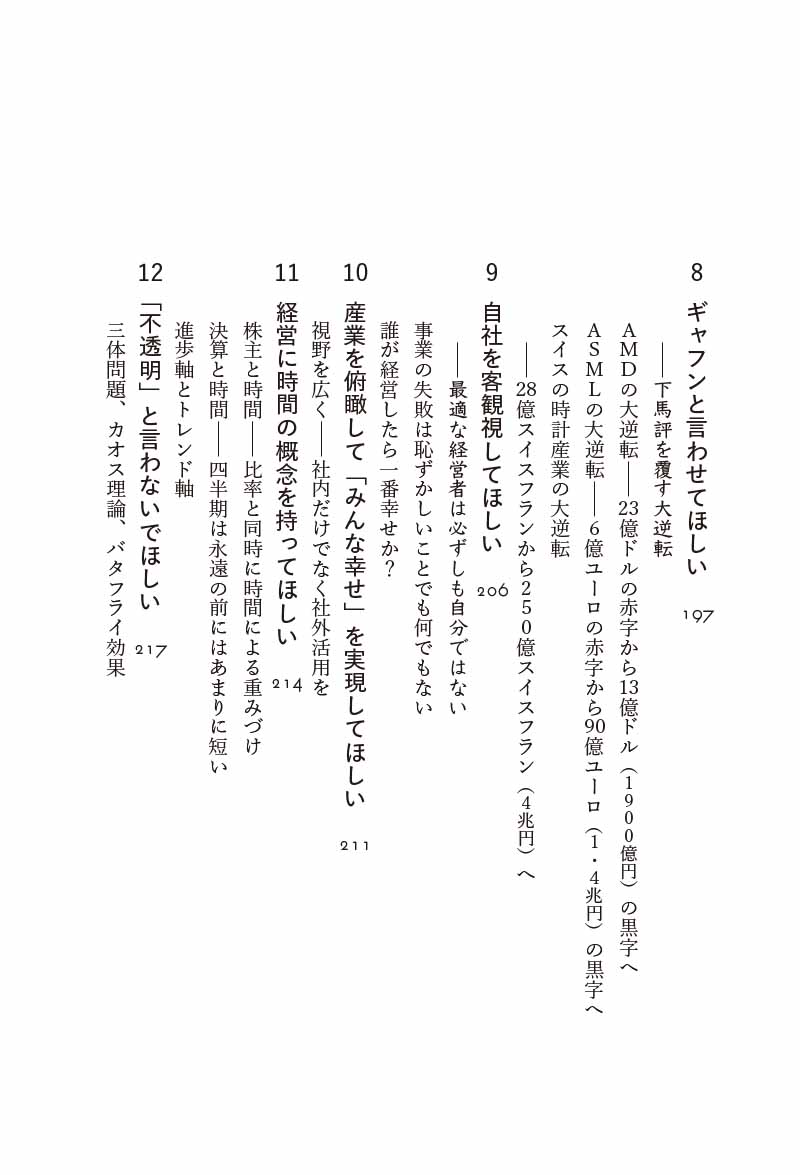 8 ギャフンと言わせてほしい 197
――下馬評を覆す大逆転
AMDの大逆転――23億ドルの赤字から13億ドル（1900億円）の黒字へ
ASMLの大逆転――6億ユーロの赤字から90億ユーロ（1・4兆円）の黒字へ
スイスの時計産業の大逆転
――28億スイスフランから250億スイスフラン（4兆円）へ
9 自社を客観視してほしい 206
――最適な経営者は必ずしも自分ではない
事業の失敗は恥ずかしいことでも何でもない
誰が経営したら一番幸せか？
10 産業を俯瞰して「みんな幸せ」を実現してほしい 211
視野を広く――社内だけでなく社外活用を
11 経営に時間の概念を持ってほしい 214
株主と時間――比率と同時に時間による重みづけ
決算と時間――四半期は永遠の前にはあまりに短い
進歩軸とトレンド軸
12 「不透明」と言わないでほしい 217
三体問題、カオス理論、バタフライ効果